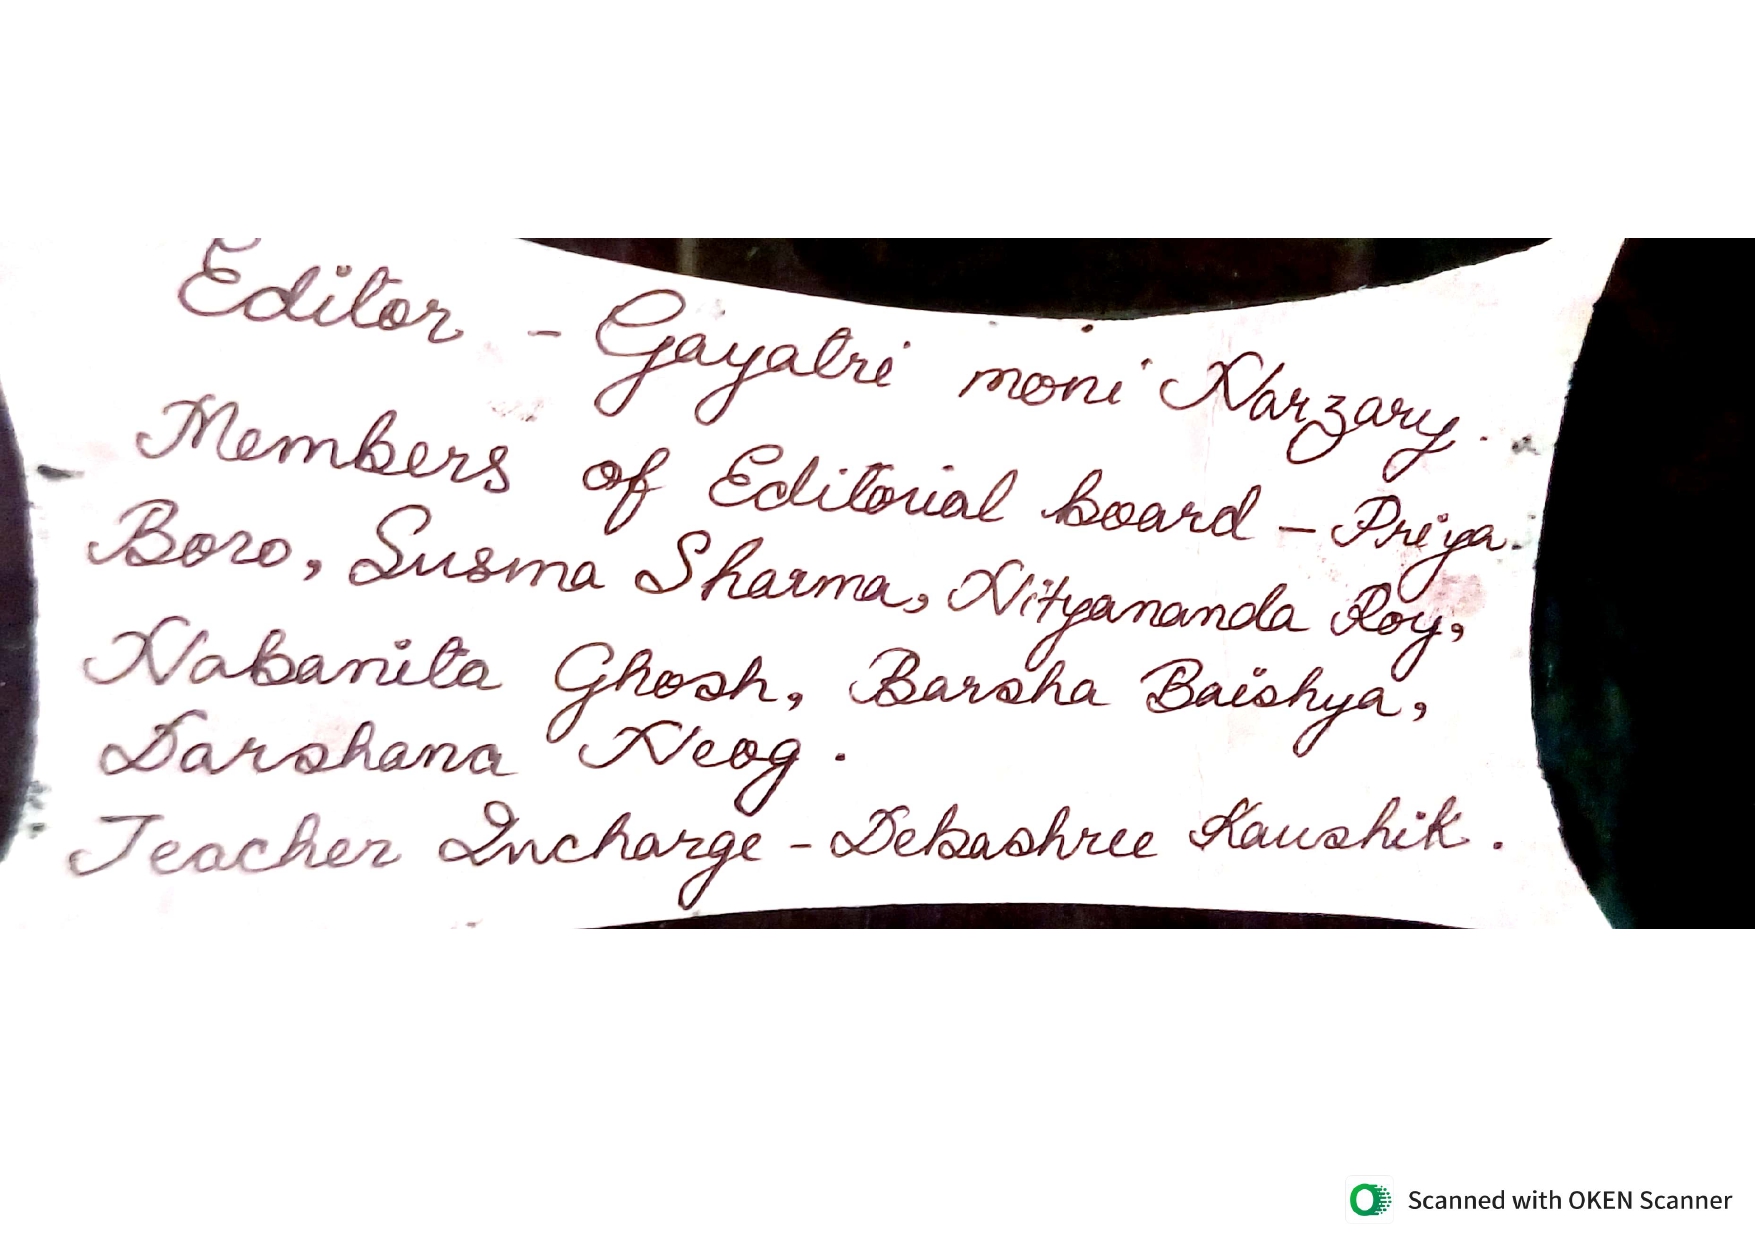 Editor - Gayatri moni Narzary.
Members of Editorial board - Priya
Boro, Susma Sharma, Nityananda Roy,
Nabanita Ghosh, Barsha Baishya,
Darshana Neog.
Teacher Incharge - Debashree Kaushik.
Scanned with OKEN Scanner